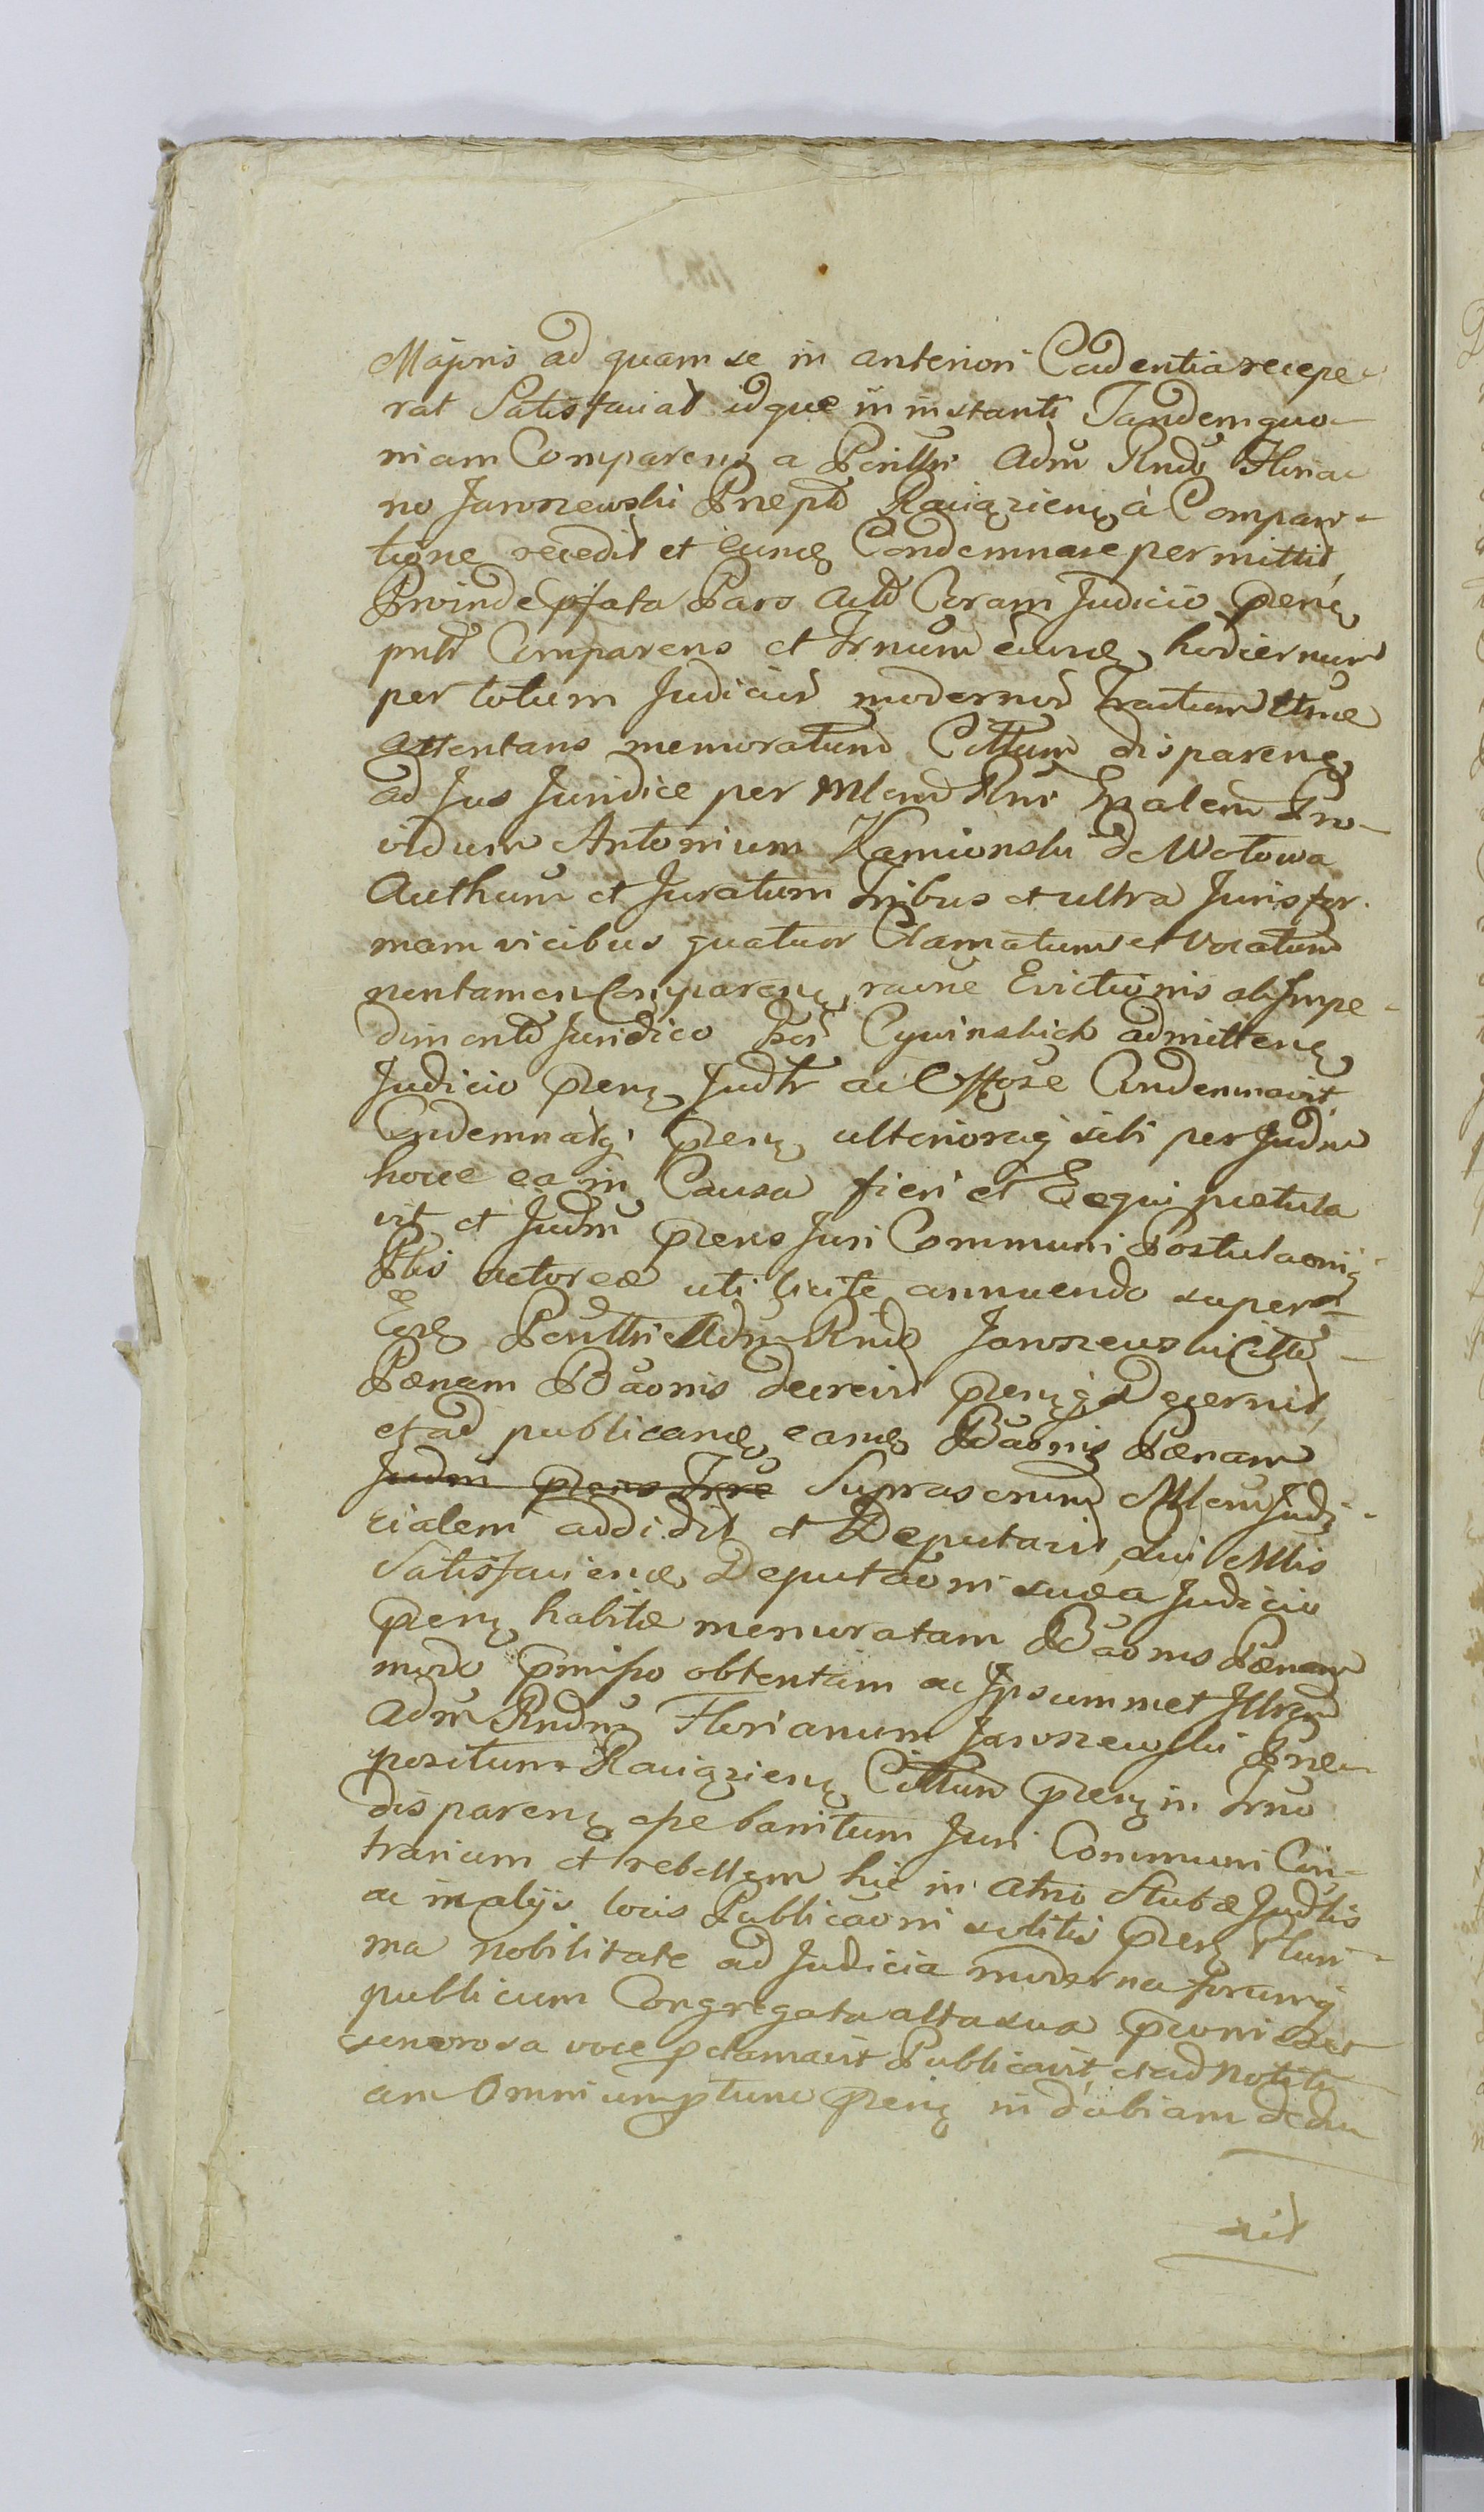 Majoris ad quam se in anteriori Cadentia recepe-
rat Satisfaciat idque in instanti Tandem quo-
niam Comparens a Perilltri Adm̃ Rndo Floria-
no Jaroszewski Præpto Raciąziens à Compari-
tione recedit et eund Condemnare permittit,
Proinde pfata Pars Act Coram Judicio prnẽ
pntr Comparens et Trnum eund hodiernum
per totum Judicior modernor Tractum
attentans memoratum Cittum disparenẽ
ad Jus Juridice per Mlem Rni Gnalem Pro-
vidum Antonium Kamionski de Wotowa
Authum et Juratum tribus et ultra Juris for-
mam vicibus quatuor Clamatum et Vocatum
nontamen Comparenẽ, raõne Evictionis ab Impe-
dimento Juridico Cywinskich admittenẽ
Judicio prnẽ Judtr ac Offose Condemnavit,
Condemnatq prnẽ ulterioraq sibi per Judm
hocce ea in Causa fieri et Exequi postula
vit et Judm prens Juri Communi Postulaonis
Ptis actoreæ uti licite annuendo super
Eod Perilltri Adm Rndo Jaroszewski Citto
Pænam Bãonis decrevit prensq Decernit,
et ad publicand eand Bãonis Pænam
Judm prens Trre Suprascrum Mlem Judi-
cialem addidit et Deputavit, qui Mlis
Satisfaciend Deputaõni suæ a Judicio
prnẽ habitæ memoratam Bãonis Pænam
modo præmisso obtentam ac Ipsummet Illrem
Adm Rndum Florianum Jaroszewski Præ-
positum Raciąziens Cittum prnẽ in Trno
disparenẽ banitum Juri Communi Con-
trarium et rebellem hic in Atrio Stubæ Judlis
ac in alijs locis Publicaõni solitis prnẽ Pluri-
ma Nobilitate ad Judicia moderna forumq
publicum Congregata alta sua præconia et
sonorosa voce pclamavit Publicavit, et ad Notiti
am Omnium ptum prnẽ indubiam dedu
xit